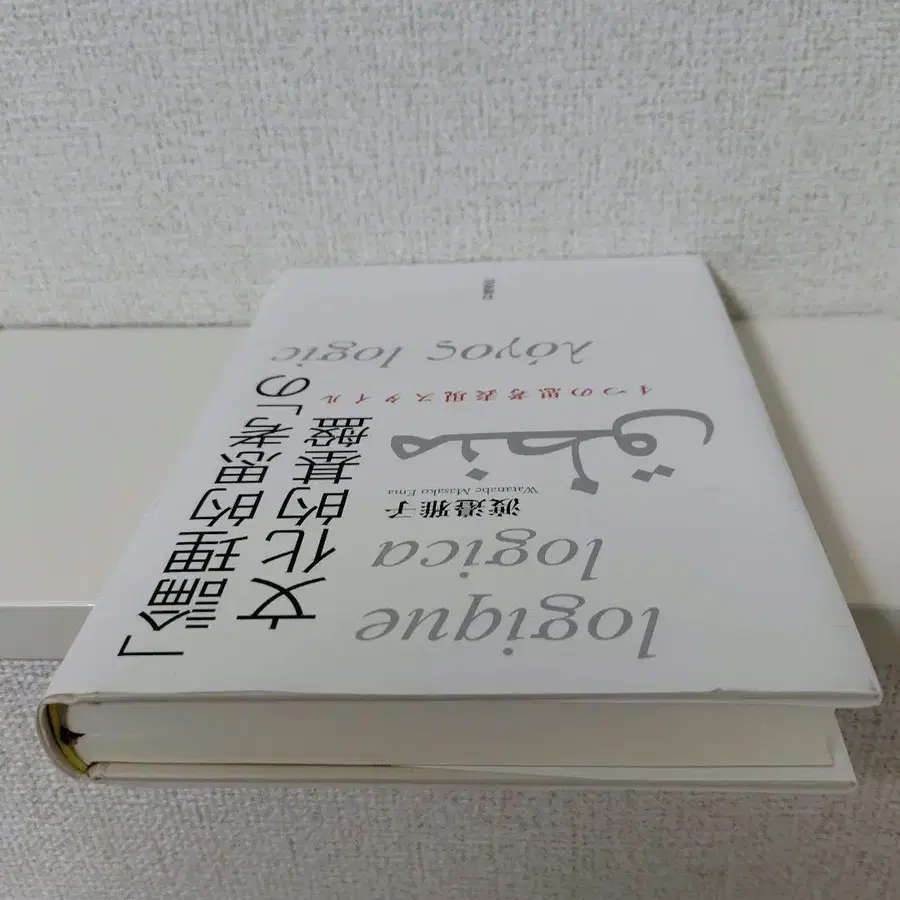 「論理的思考」の
文化的基盤
4つの思考表現スタイル
渡邉雅子
Watanabe Masako Ema
logique
logica
منطق
λόγος logic